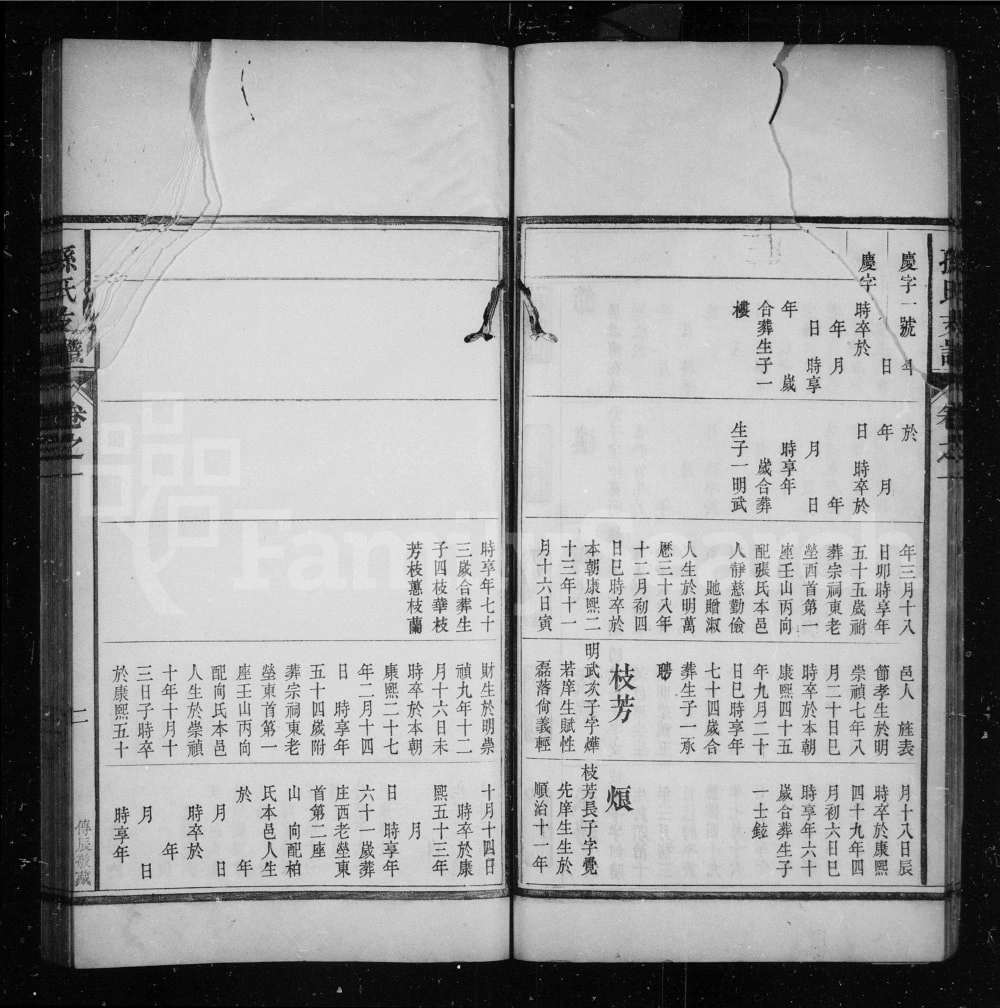 慶字一號
日
慶字 時卒於
年 月
日 時享
年 歲
合葬生子一
樓
於
年 月
日 時卒於
年
月 日
時享年
歲合葬
生子一明武
年三月十八
日卯時享年
五十五歲祔
葬宗祠東老
塋西首第一
座壬山丙向
配張氏本邑
人靜慈勤儉
貤贈淑
人生於明萬
曆三十八年
十二月初四
日巳時卒於
本朝康熙二
十三年十一
月十六日寅
邑人 旌表
節孝生於明
崇禎七年八
月二十日巳
時卒於本朝
康熙四十五
年九月二十
日巳時享年
七十四歲合
葬生子一承
聘
枝芳
明武次子字燁
若庠生賦性
磊落尙義輕
月十八日辰
時卒於康熙
四十九年四
月初六日巳
時享年六十
歲合葬生子
一士鋐
烺
枝芳長子字覺
先庠生生於
順治十一年
孫氏支譜 卷之一
時享年七十
三歲合葬生
子四枝華枝
芳枝蕙枝蘭
財生於明崇
禎九年十二
月十六日未
時卒於本朝
康熙二十七
年二月十四
日 時享年
五十四歲附
葬宗祠東老
塋東首第一
座壬山丙向
配向氏本邑
人生於崇禎
十年十月十
三日子時卒
於康熙五十
十月十四日
時卒於康
熙五十三年
月
日 時享年
六十一歲葬
庄西老塋東
首第二座
山 向配柏
氏本邑人生
於 年
月 日
時卒於
年
月 日
時享年
孫氏支譜
卷之一
二
傳辰敬藏
FamilySearch